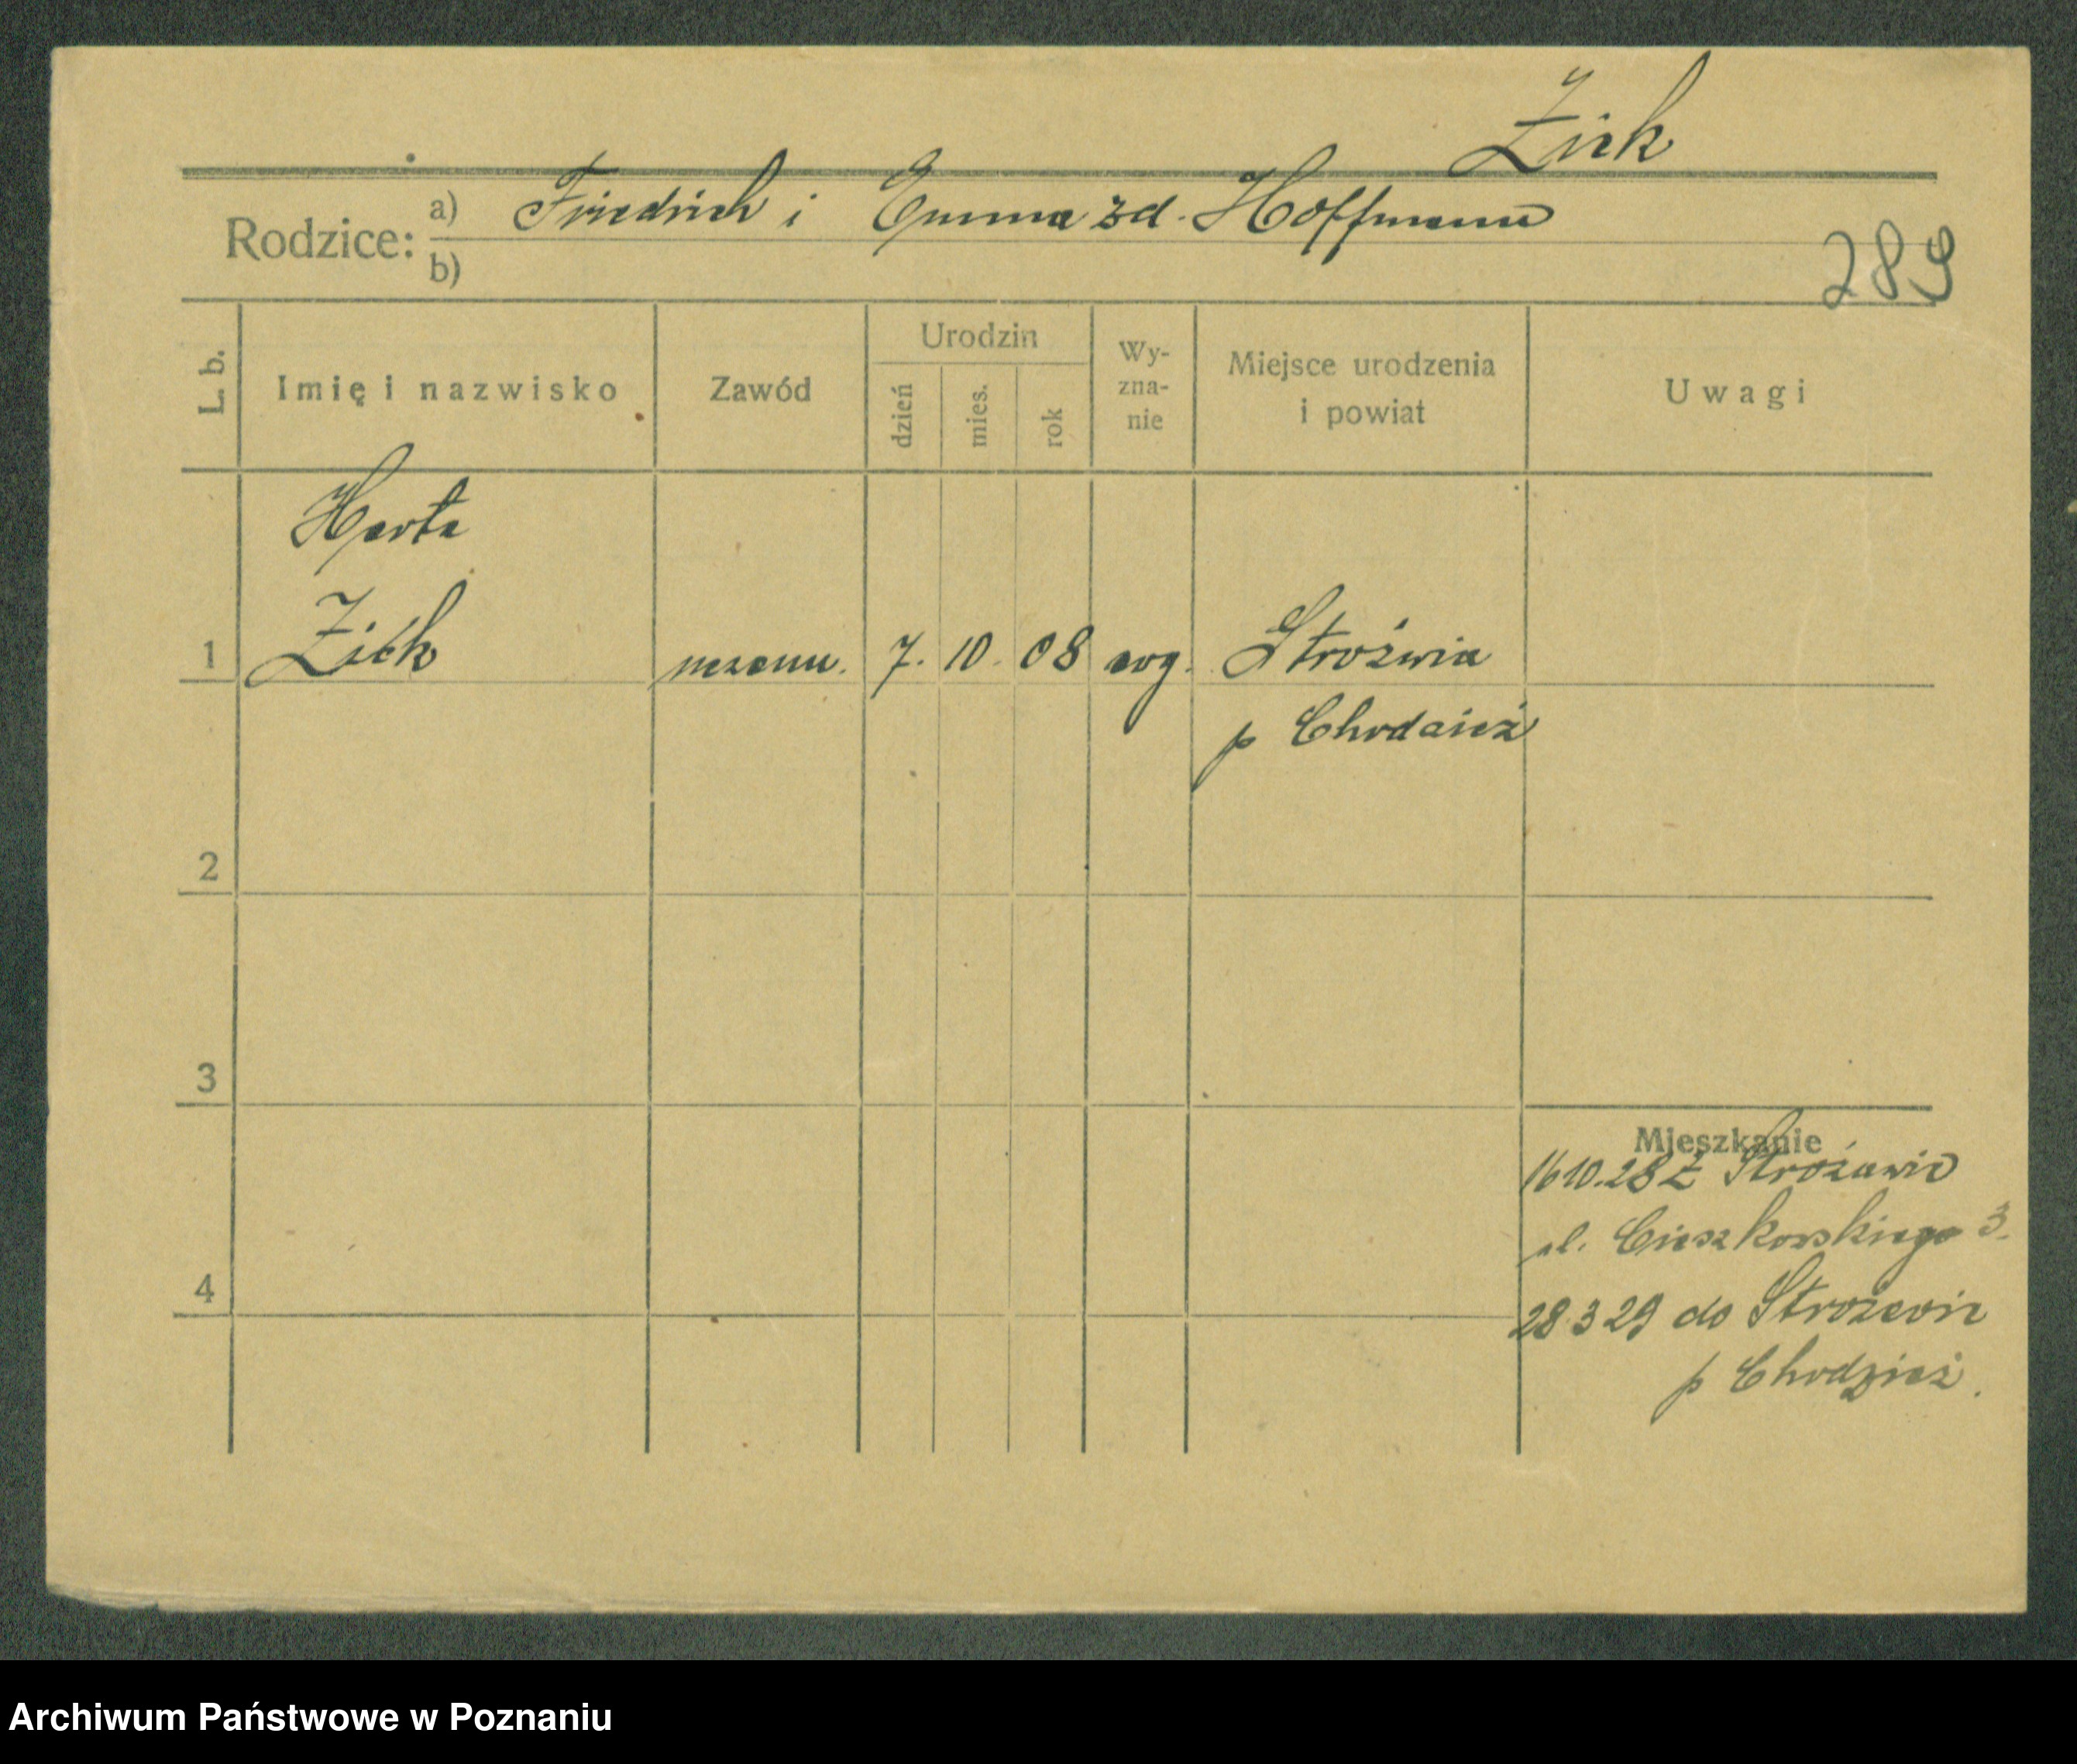 Zick
Rodzice:
a) Friedrich i Emma zd. Hoffmann
b)
289
L. b.
Imię i nazwisko
Zawód
Urodzin
dzień
mies.
rok
Wy-
zna-
nie
Miejsce urodzenia
i powiat
Uwagi
Herta
1 Zick 7. 10. 08 ewg.
p Chodzież
2
3
4
Mieszkanie
16 10.28 Z
ul. Cieszkowskiego 3.
28 3 29 do
p Chodzież.
Archiwum Państwowe w Poznaniu